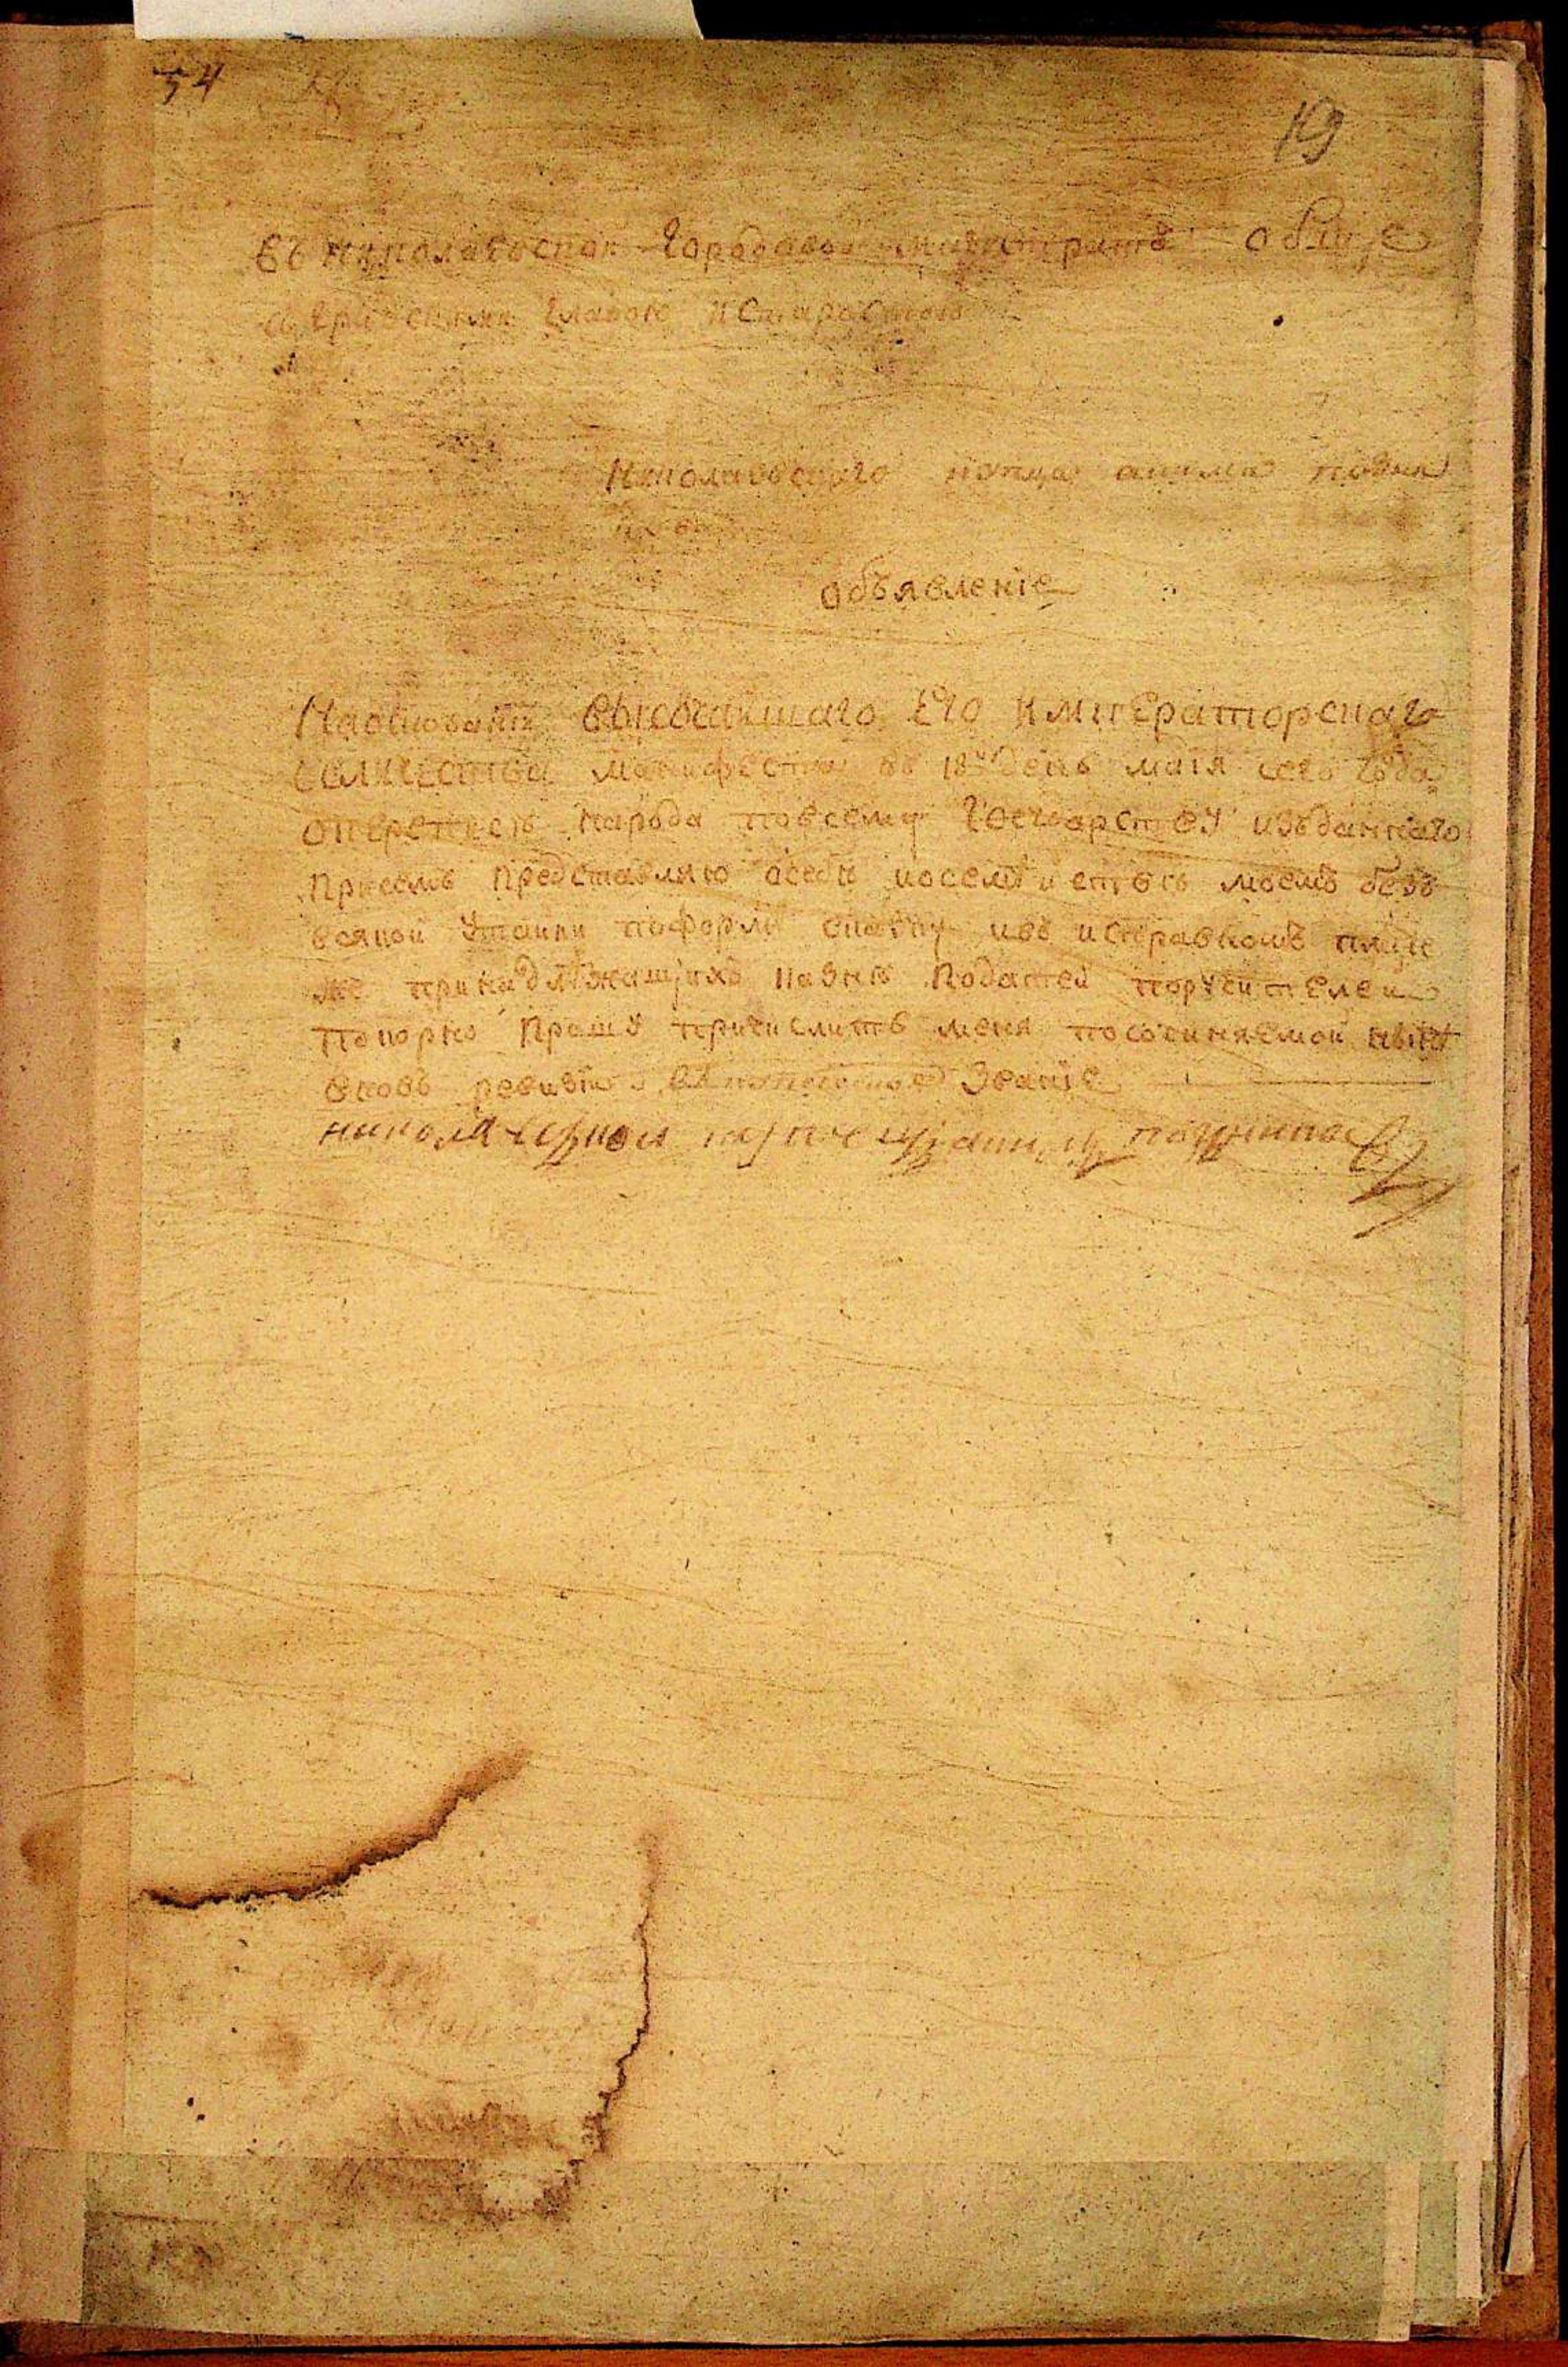 54
19
въ николаевской городовой магистратъ обще
съ градскими главою и старостою
Николаевского купца акима позня
кова
объявленіе
На основаніи высочайшаго его императорскаго
величества манифеста въ 18й день маія сего года
о переписи народа повсему государству изъданнаго
присемъ представляю осебѣ и осемѣиствѣ моемъ безъ
всякой утайки поформѣ скаску ивъ исправномъ плате
же принадлѣжащихъ казнѣ податей поручителей
покорно прошу причислить меня посочиняемой нынѣ
вновь ревизіи в купеческое званіе
николаевской купецъ аким позняков